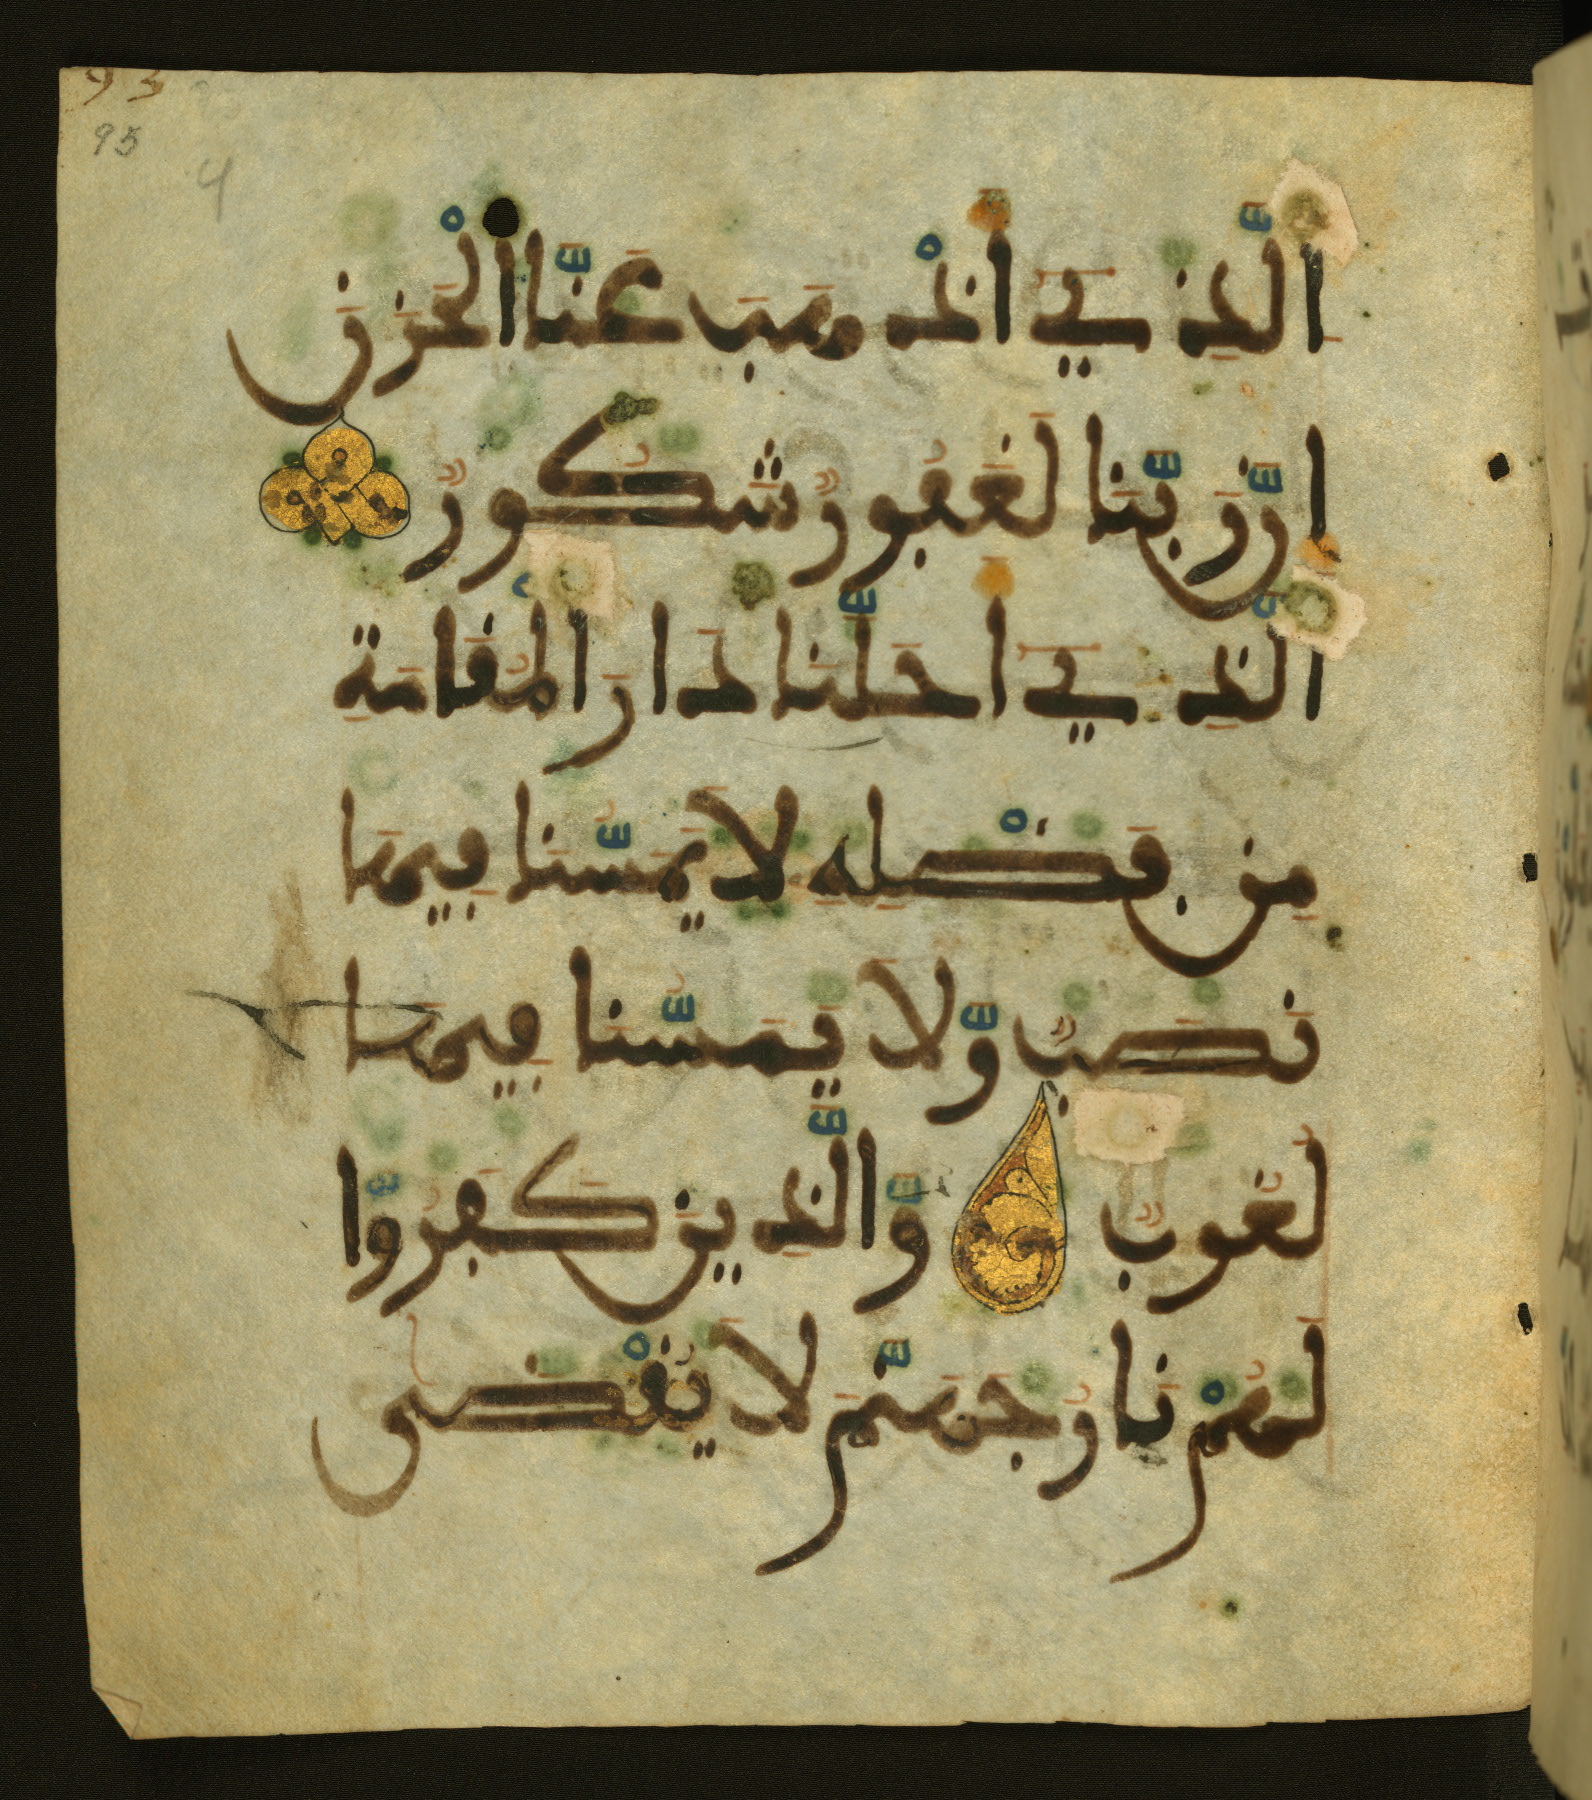 93
95
4
الَّذِي أَذْهَبَ عَنَّا الْحَزَنَ
إِنَّ رَبَّنَا لَغَفُورٌ شَكُورٌ
الَّذِي أَحَلَّنَا دَارَ الْمُقَامَةِ
مِن فَضْلِهِ لَا يَمَسُّنَا فِيهَا
نَصَبٌ وَّلَا يَمَسُّنَا فِيهَا
لُغُوبٌ وَّالَّذِينَ كَفَرُوا
لَهُمْ نَارُ جَهَنَّمَ لَا يُقْضَى